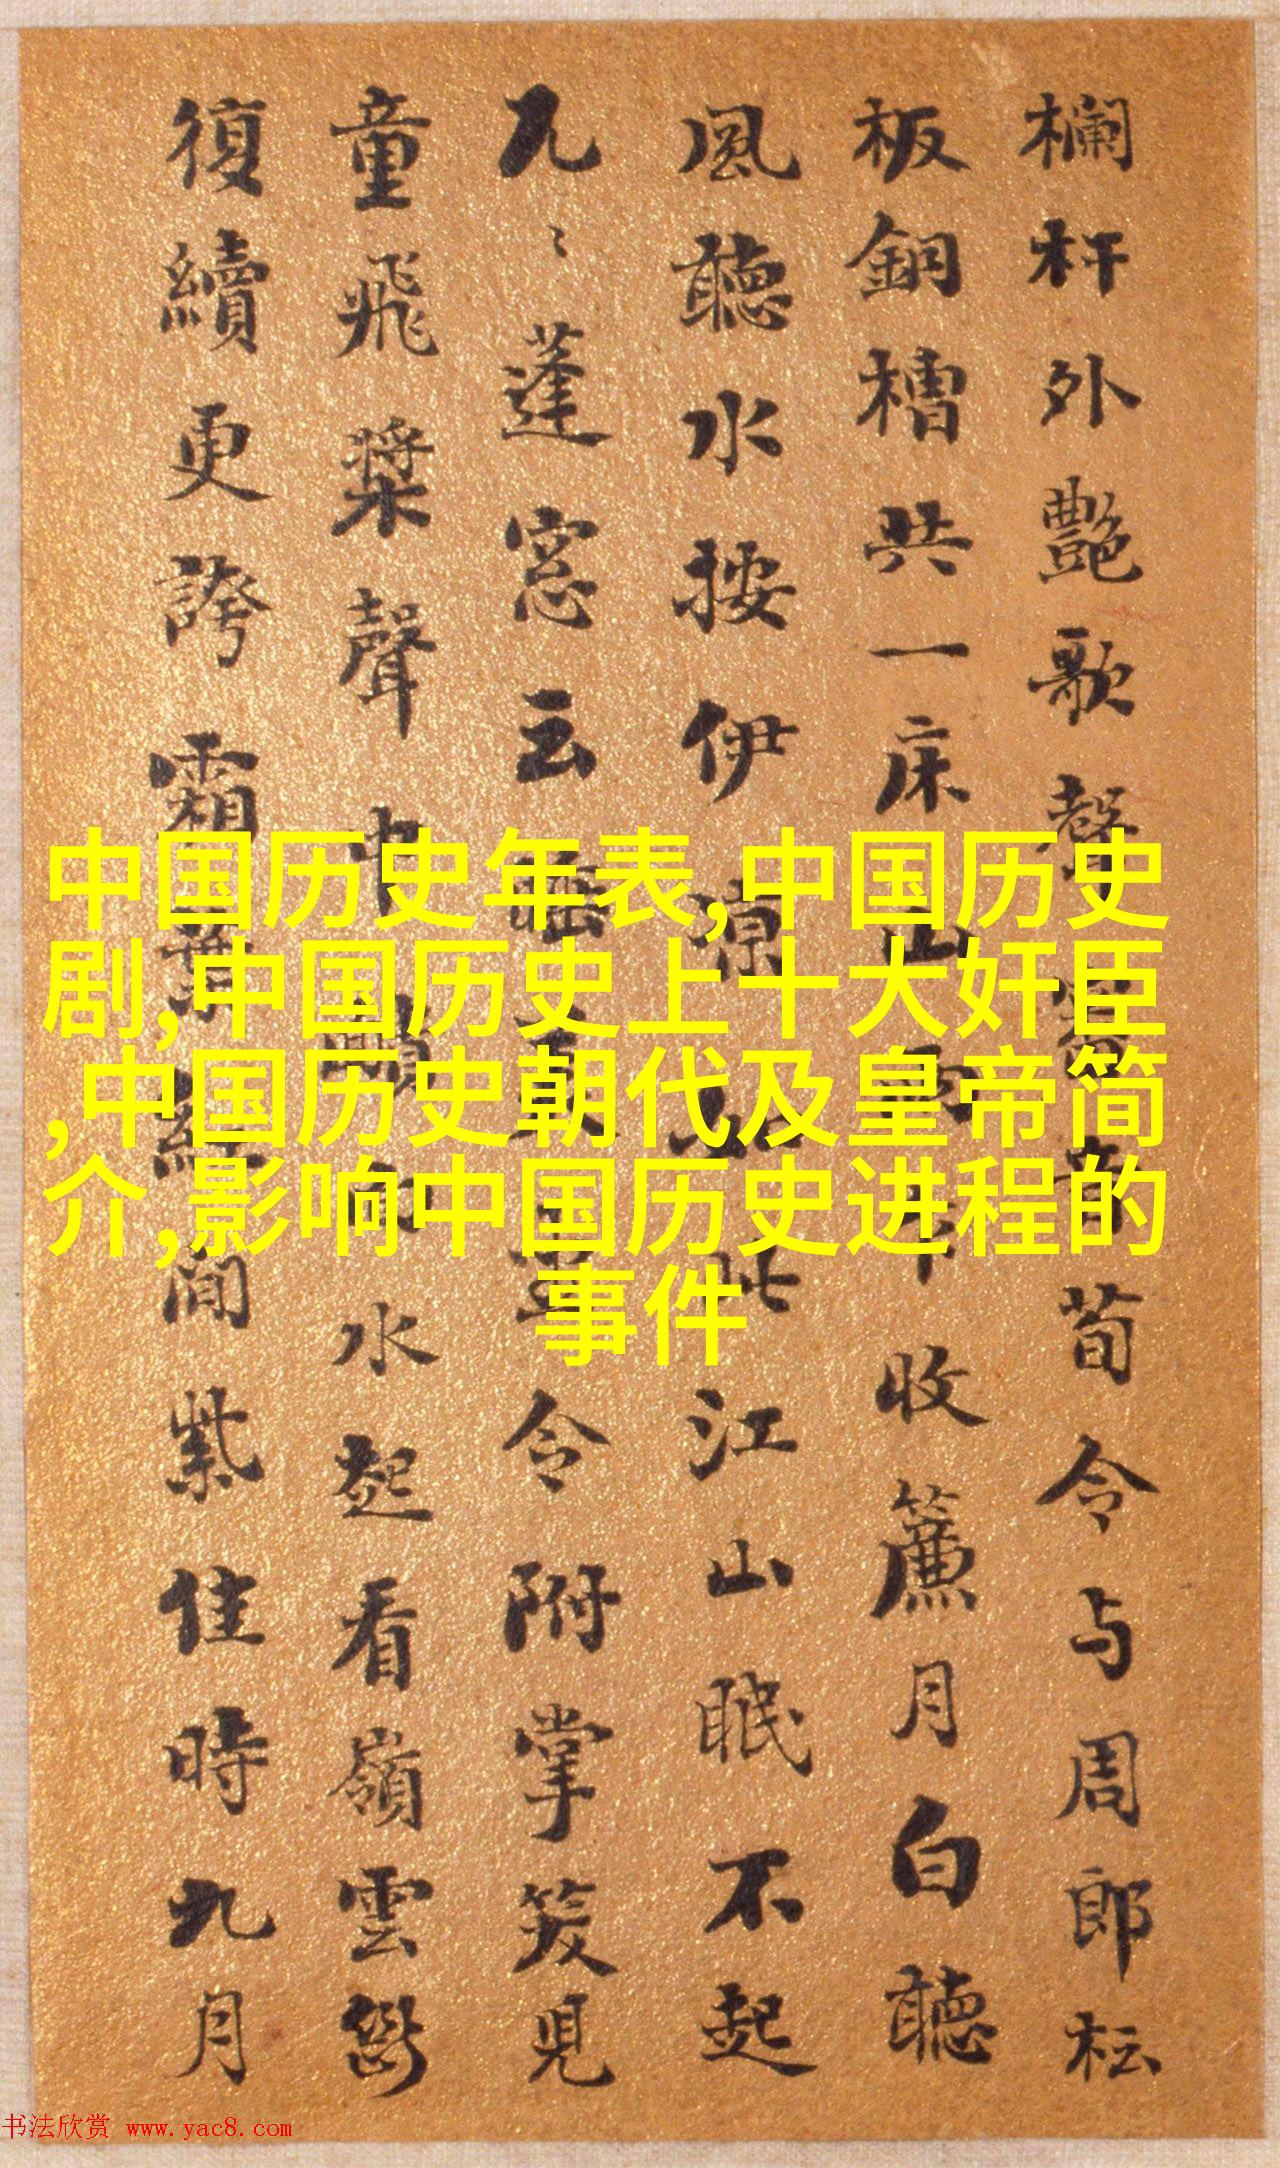 欄杆外艷歌聲荀令与周郎
板銅槽共一床山雲下收簾月白聽
風聽水按伊涼如此江山眠不起
蓬窓云令附掌笑見
童飛槳聲中水起看嶺雲
復續更誇霜葉紅間紫佳時九月
中国历史年表,中国历史
剧,中国历史上十大奸臣
,中国历史朝代及皇帝简
介,影响中国历史进程的
事件
书法欣赏 www.yac8.com